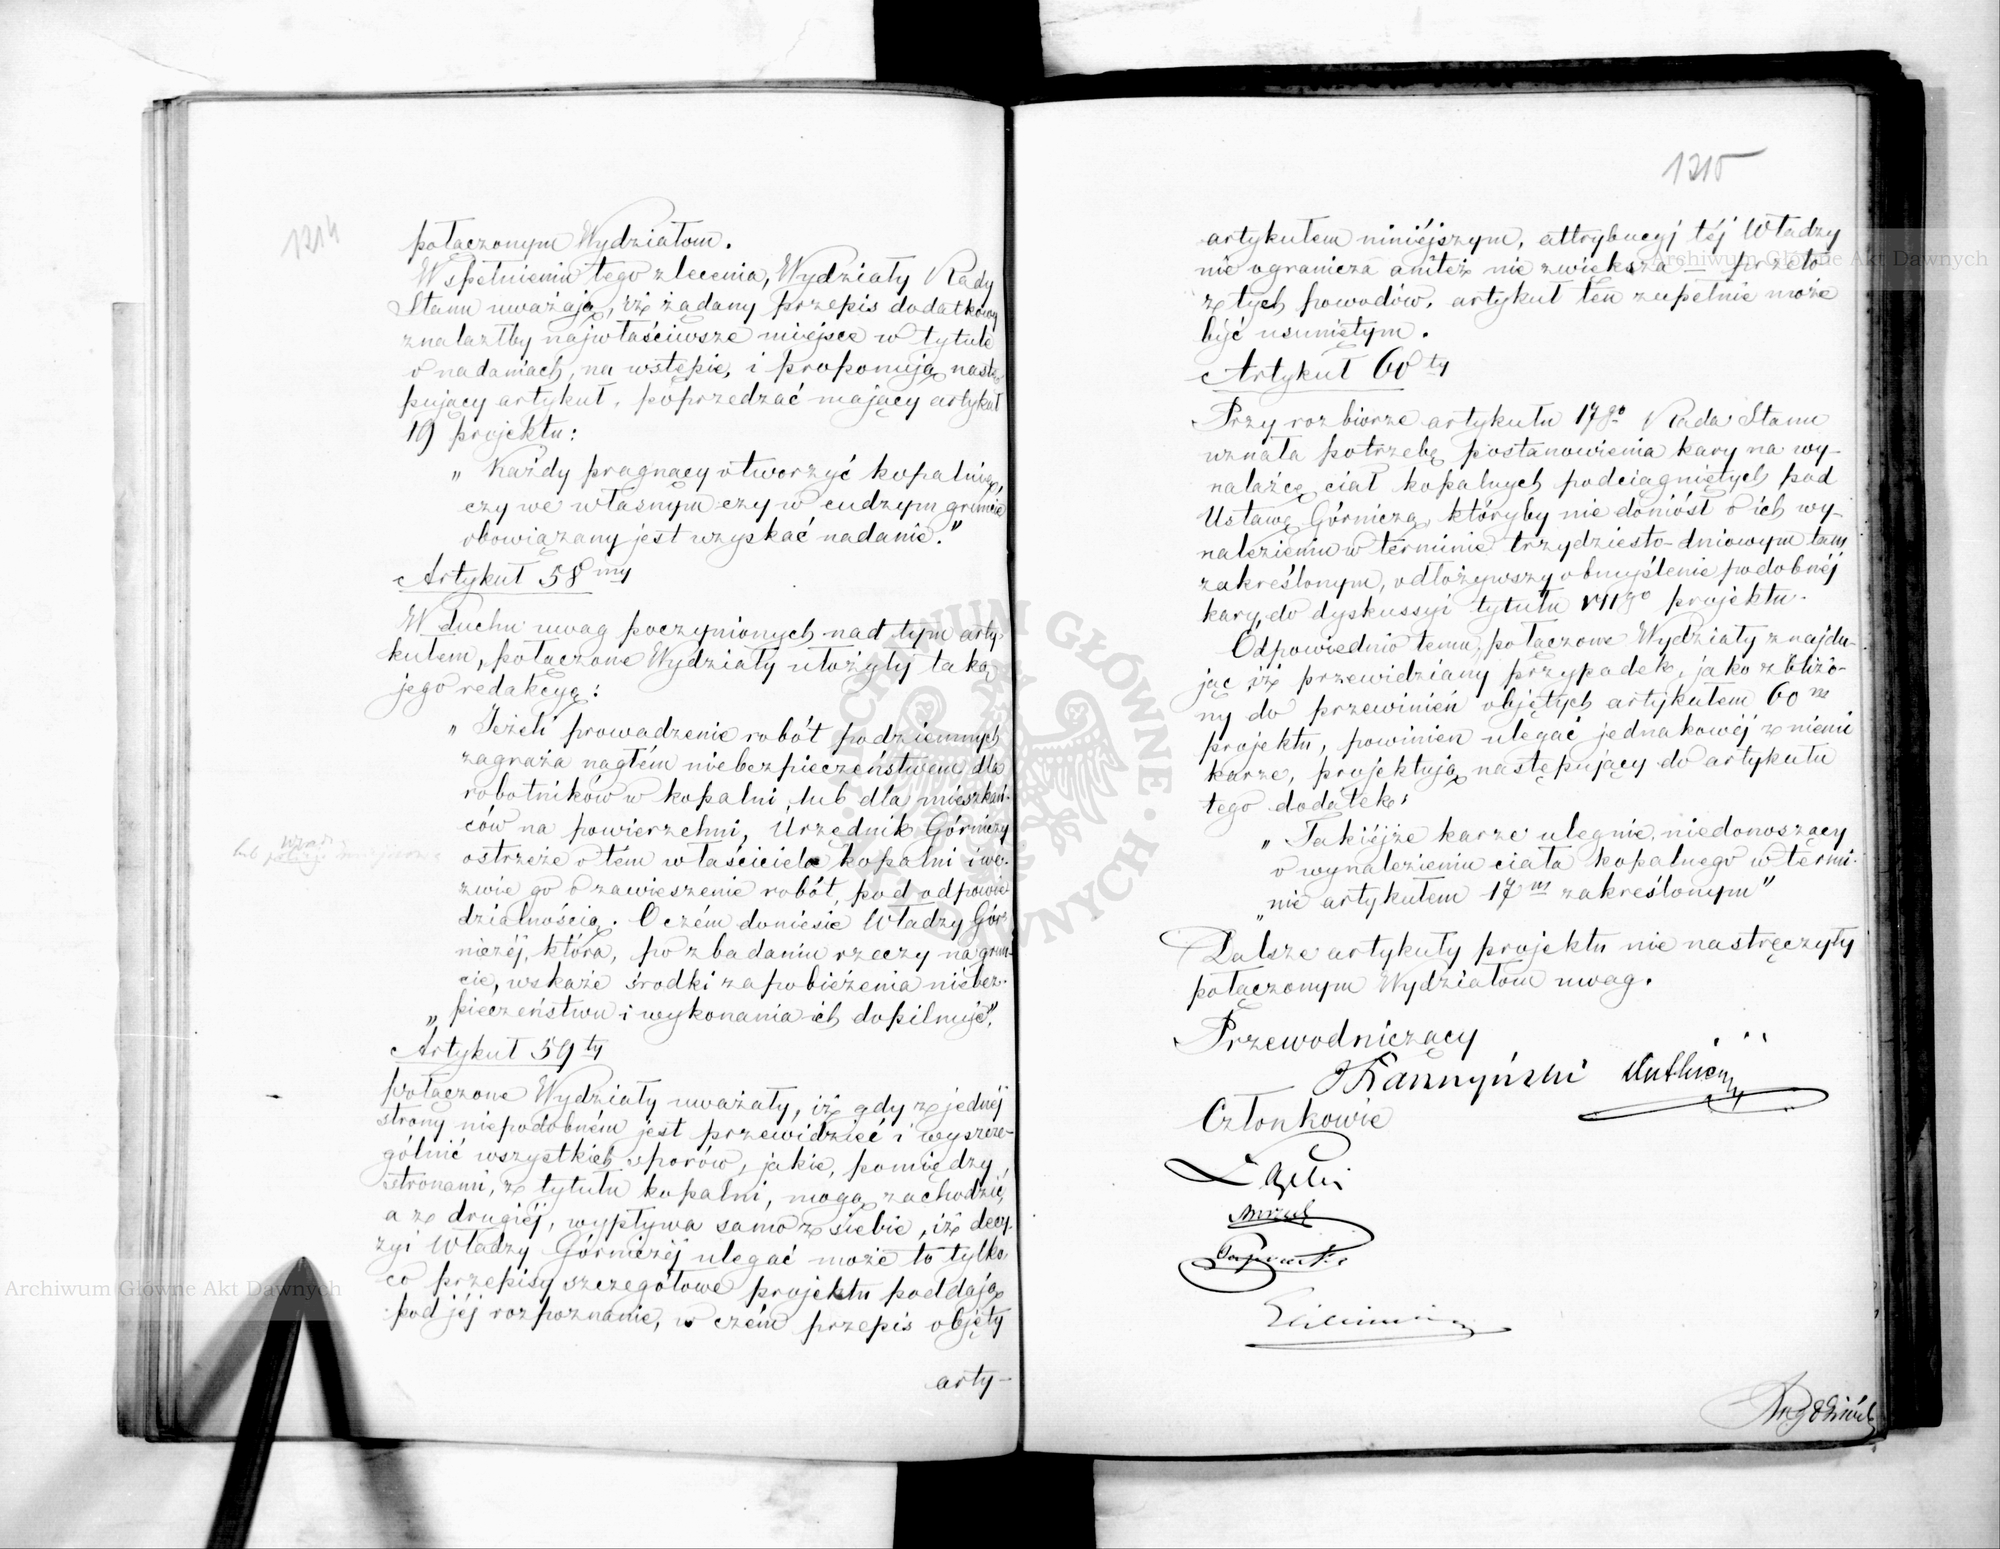 1214
połączonym Wydziałom.
W spełnieniu tego zlecenia, Wydziały Rady
Stanu uważają, iż żądany przepis dodatkowy
znalazłby najwłaściwsze miejsce w tytule
o nadaniach, na wstępie, i proponują nastę-
pujący artykuł, poprzedzać mający artykuł
19 projektu:
„Każdy pragnący otworzyć kopalnię,
czy we własnym czy w cudzym gruncie
obowiązany jest uzyskać nadanie."
Artykuł 58my
W duchu uwag poczynionych nad tym arty-
kułem, połączone Wydziały ułożyły taką
jego redakcyą:
„Jeżeli prowadzenie robót podziemnych
zagraża nagłém niebezpieczeństwem dla
robotników w kopalni, lub dla mieszkań-
ców na powierzchni, Urzędnik Górniczy
ostrzeże o tém właściciela kopalni i we-
zwie go o zawieszenie robót, pod odpowie-
dzialnością. O czém doniesie Władzy Gór-
niczéj, która, po zbadaniu rzeczy na grun-
cie, wskaże środki zapobieżenia niebez-
„pieczeństwu i wykonania ich dopilnuje".
Artykuł 59ty
połączone Wydziały uważały, iż gdy z jednéj
strony niepodobném jest przewidzieć i wyszcze-
gólnić wszystkich sporów, jakie, pomiędzy
stronami, z tytułu kopalni, mogą zachodzić,
a z drugiéj, wypływa samo z siebie, iż decy-
zyi Władzy Górniczéj ulegać może to tylko,
co przepisy szczegółowe projektu poddają
pod jéj rozpoznanie, w czém przepis objęty
arty-
1215
artykułem niniéjszym, attrybucyj téj Władzy
nie ogranicza anitéż nie zwiększa – przeto
z tych powodów, artykuł ten zupełnie może
być usuniętym.
Artykuł 60ty
Przy rozbiorze artykułu 17go Rada Stanu
uznała potrzebę postanowienia kary na wy-
nalazcę ciał kopalnych podciągniętych pod
Ustawę Górniczą, któryby nie doniósł o ich wy-
nalezieniu w terminie trzydziesto-dniowym tam
zakreślonym, odłożywszy obmyślenie podobnéj
kary, do dyskussyi tytułu VIIgo projektu.
Odpowiednio temu, połączone Wydziały znajdu-
jąc, iż przewidziany przypadek, jako zbliżo-
ny do przewinień objętych artykułem 60m
projektu, powinien ulegać jednakowéj z niemi
karze, projektują następujący do artykułu
tego dodatek:
„Takiéjże karze ulegnie, niedonoszący
o wynalezieniu ciała kopalnego w termi-
„nie artykułem 17m zakreślonym"
Dalsze artykuły projektu nie nastręczyły
połączonym Wydziałom uwag.
Przewodniczący
Członkowie
Archiwum Główne Akt Dawnych
Archiwum Główne Akt Dawnych
ARCHIWUM GŁÓWNE AKT DAWNYCH